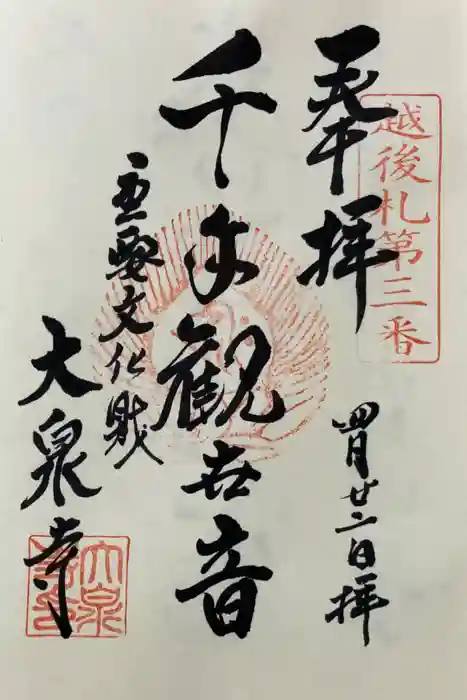 越後札第三番
奉拝
四月廿二日拝
千手観世音
重要文化財
大泉寺
大泉寺印